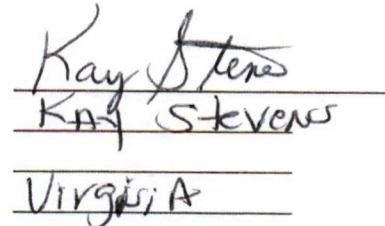 Kay Stevens
KAy Stevens
Virginia